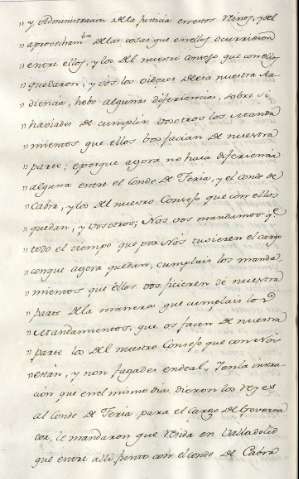 " y administracion de la justicia en estos Reinos, y del
" aprovecham.to de las cosas que en ellos ocurrieren
" entre ellos, y los del nuestro Consejo que con ellos
" quedaron, y con los oidores de la nuestra Au
" diencia, hobo algunas diferiencias, sobre si
" habiades de cumplir vosotros los manda
" mientos que ellos vos facian de nuestra
" parte; e porque agora no haia diferiencia
" alguna entre el Conde de Feria, y el Conde de
" Cabra, y los del nuestro Consejo que con ellos
" quedan, y vosotros; Nos vos mandamos q.e
" todo el tiempo que por Nos tuvieren el cargo
" con que agora quedan, cumplais los manda
" mientos que ellos vos ficieren de nuestra
" parte de la manera que cumplais los
" mandamientos que os facen de nuestra
" parte los del nuestro Consejo que con Nos
" están, y non fagades endeal, En la instruc
ción que en el mismo dia dieron los Reyes
al Conde de Feria para el cargo de Governa
dor, le mandaron que resida en Valladolid
que entre alli junto con el Conde de Cabra